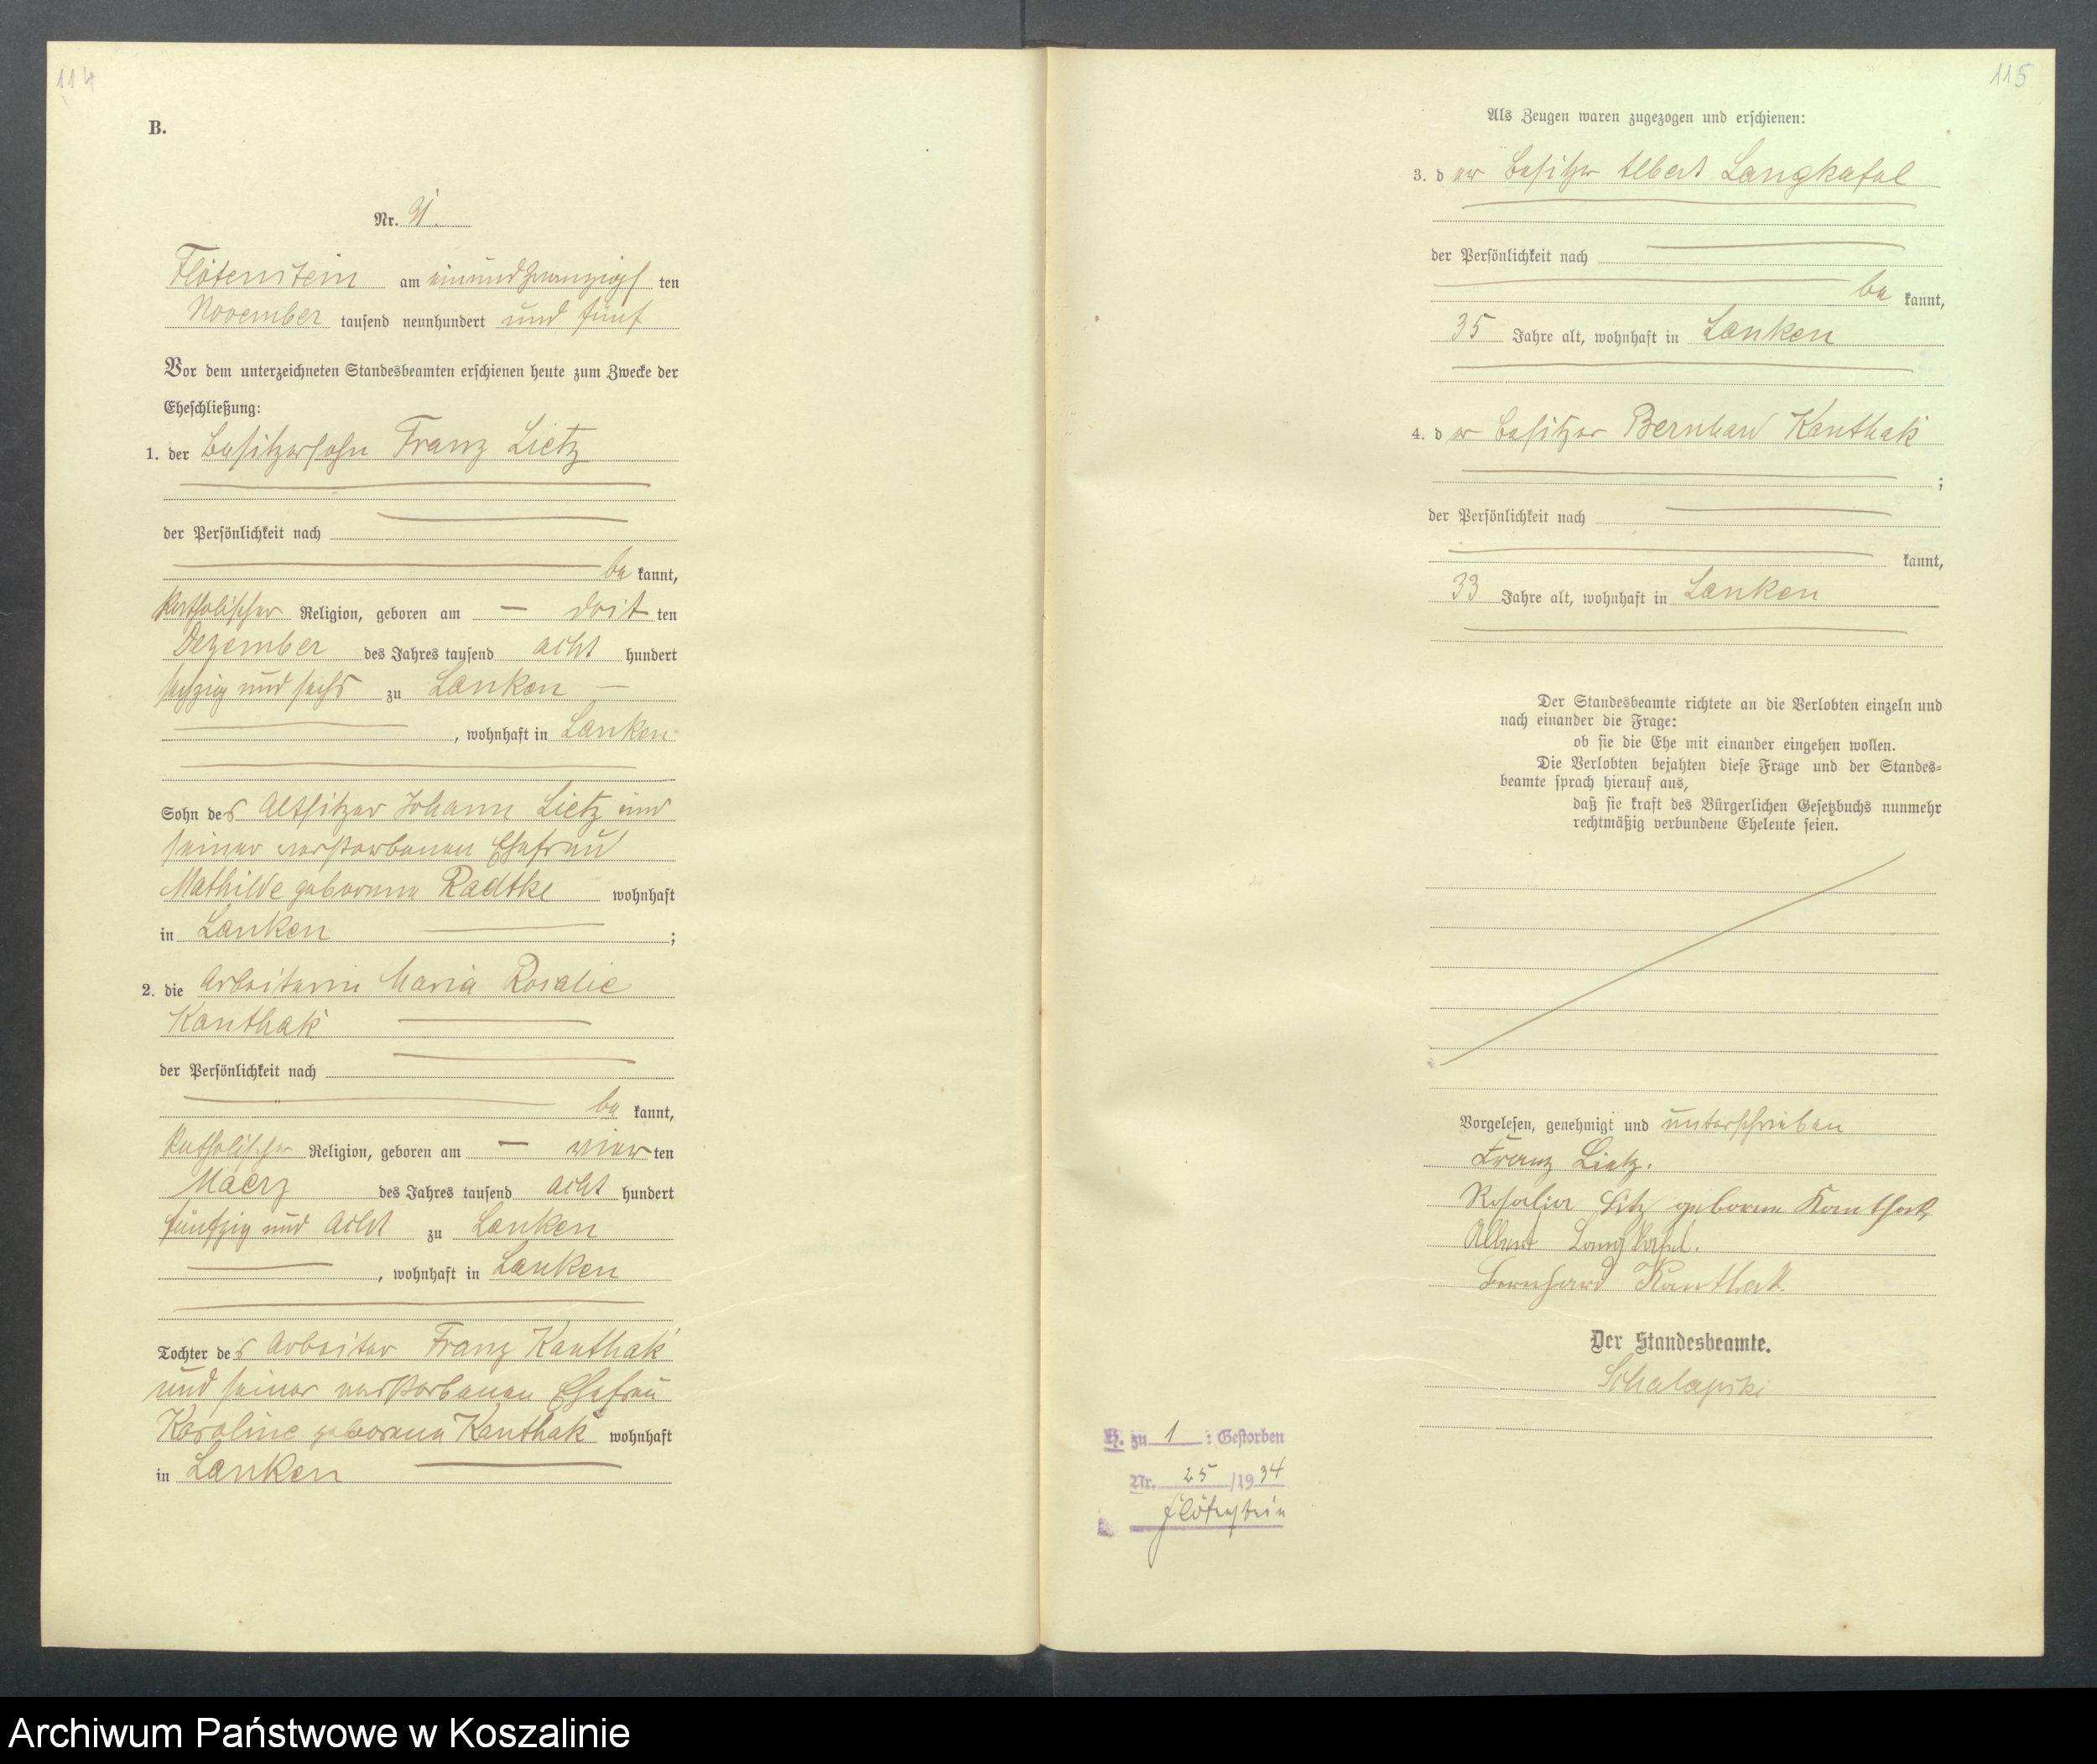 114
B.
Nr. 21.
Flötenstein am einundzwanzigs ten
November tausend neunhundert und fünf
Vor dem unterzeichneten Standesbeamten erschienen heute zum Zwecke der
Eheschließung:
1. der Besitzersohn Franz Lietz
der Persönlichkeit nach
be kannt,
katholischer Religion, geboren am — drit ten
Dezember des Jahres tausend acht hundert
sechzig und sechs zu Lanken —
, wohnhaft in Lanken
Sohn des Altsitzer Johann Lietz und
seiner verstorbenen Ehefrau
Mathilde geborene Radtke wohnhaft
in Lanken ;
2. die Arbeiterin Maria Rosalie
Kanthak
der Persönlichkeit nach
be kannt,
katholischer Religion, geboren am — vier ten
Maerz des Jahres tausend acht hundert
fünfzig und acht zu Lanken
, wohnhaft in Lanken
Tochter des Arbeiter Franz Kanthak
und seiner verstorbenen Ehefrau
Karoline geborene Kanthak wohnhaft
in Lanken
115
Als Zeugen waren zugezogen und erschienen:
3. der Besitzer Albert Langkafel
der Persönlichkeit nach
be kannt,
35 Jahre alt, wohnhaft in Lanken
4. der Besitzer Bernhard Kanthak
;
der Persönlichkeit nach
kannt,
33 Jahre alt, wohnhaft in Lanken
Der Standesbeamte richtete an die Verlobten einzeln und
nach einander die Frage:
ob sie die Ehe mit einander eingehen wollen.
Die Verlobten bejahten diese Frage und der Standes=
beamte sprach hierauf aus,
daß sie kraft des Bürgerlichen Gesetzbuchs nunmehr
rechtmäßig verbundene Eheleute seien.
Vorgelesen, genehmigt und unterschrieben
Franz Lietz.
Rosalia Litz geborene Kanthak
Albert Langkafel.
Bernhard Kanthak.
Der Standesbeamte.
Schalapski
H. zu 1 : Gestorben
Nr. 25 /1934
Flötenstein
Archiwum Państwowe w Koszalinie